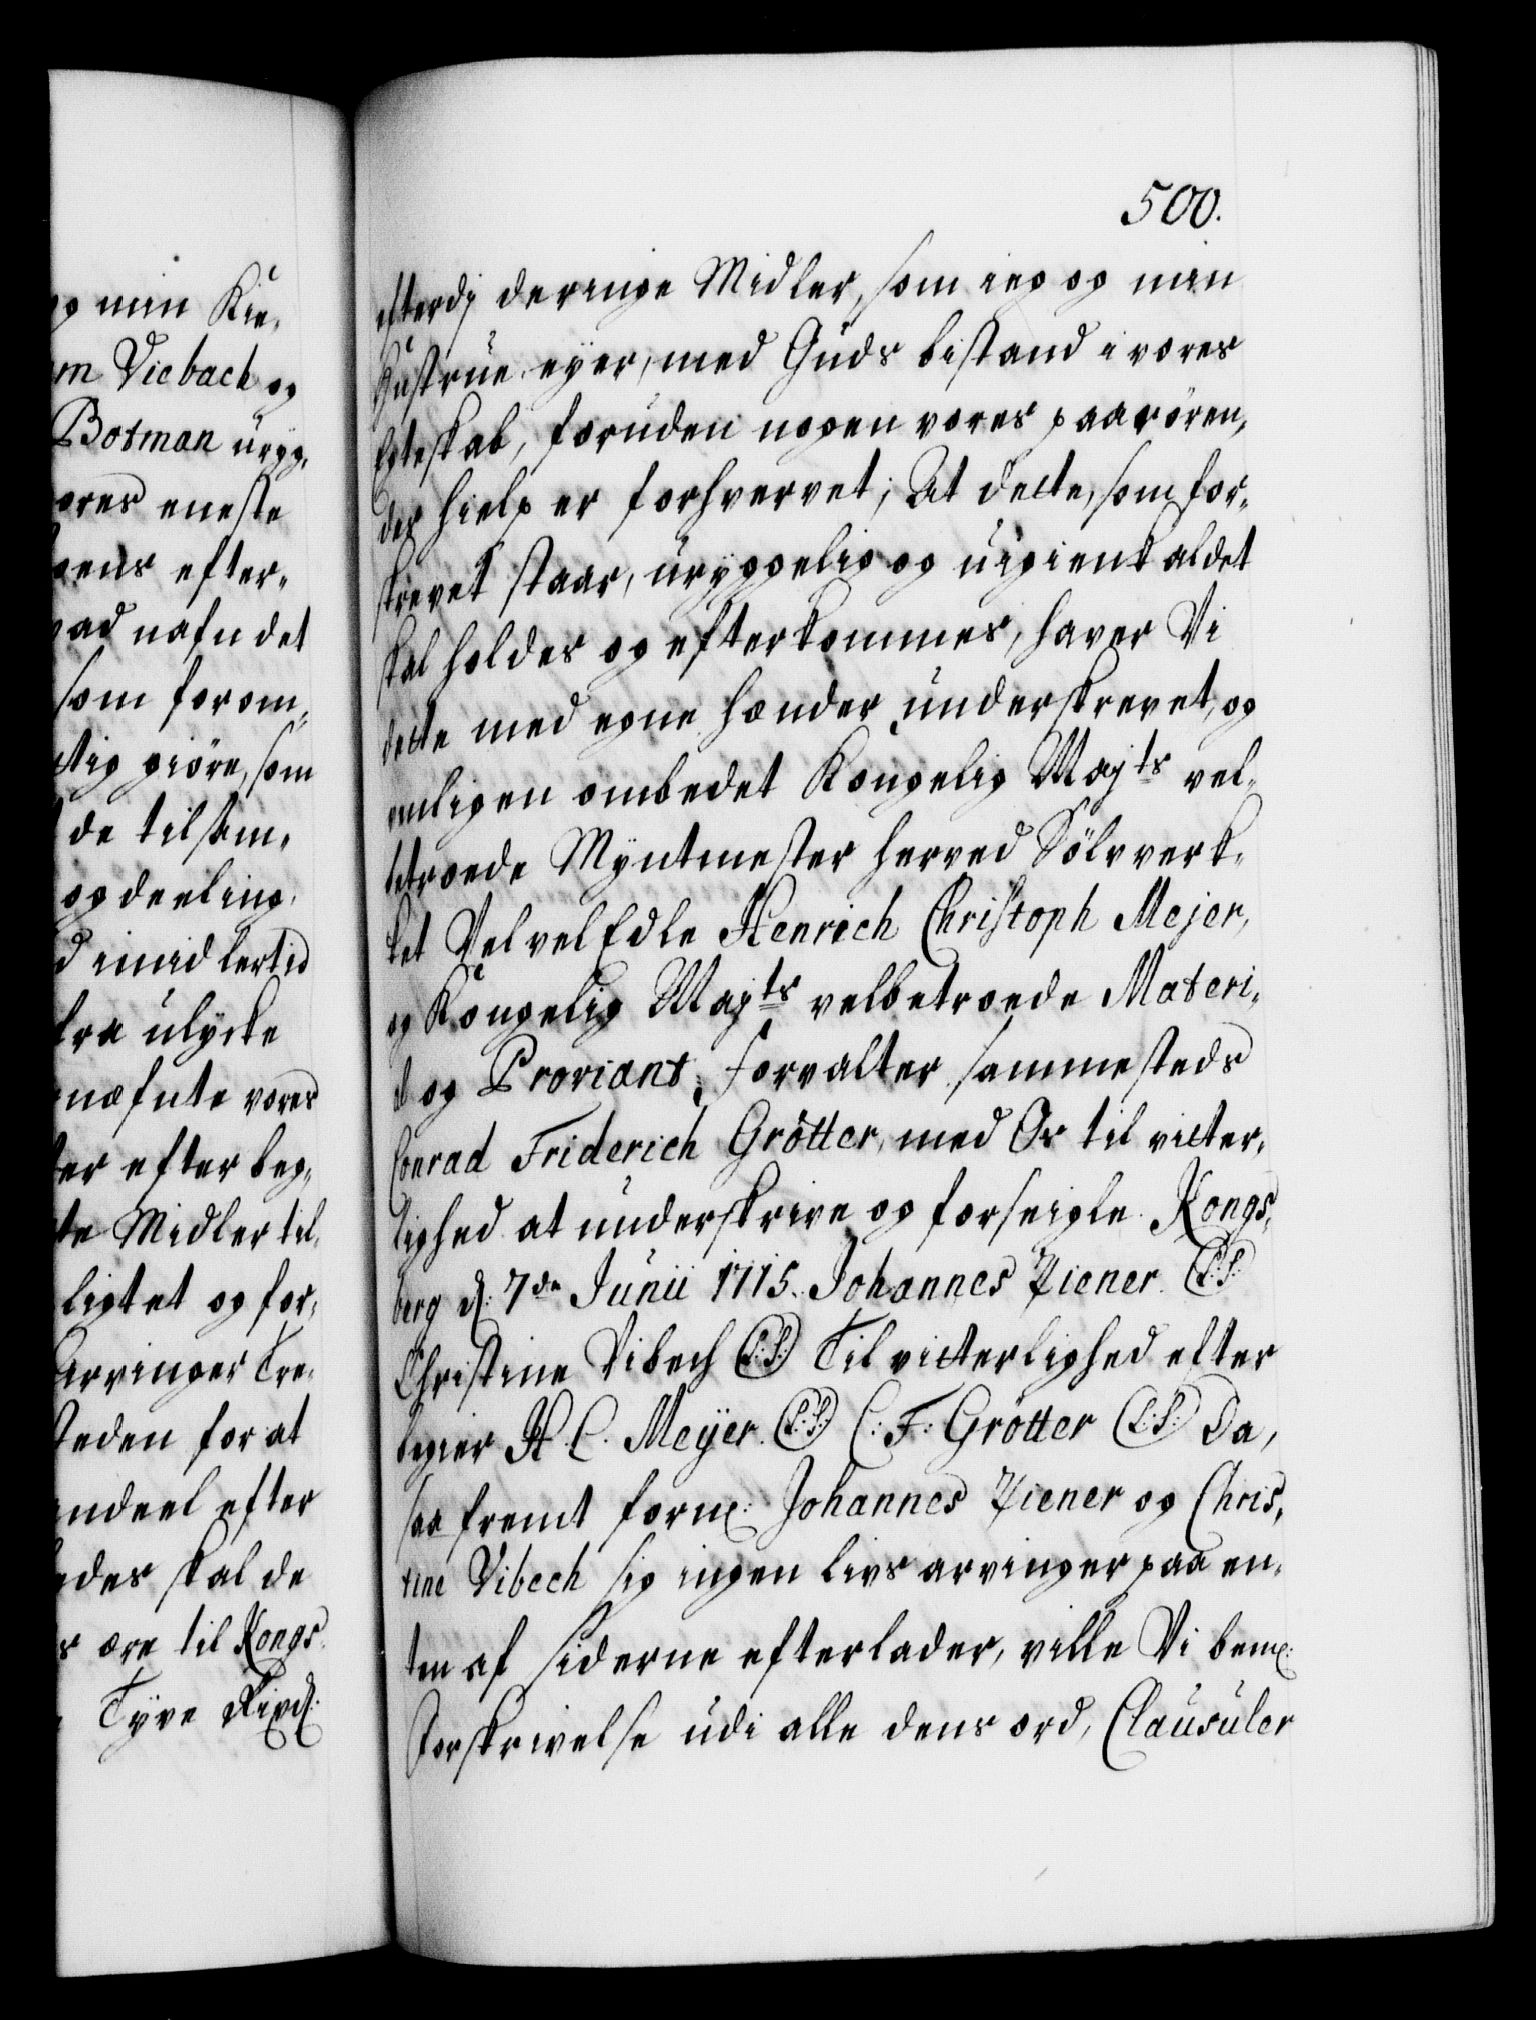 og min Kie-
Viebach og
Botman uryg-
vores eneste
efter-
nafn det
som forom-
giøre, som
de tilsam-
og deeling
imidlertid
ulycke
næfnte vores
efter beg-
Midler til-
ligtet og for-
Arvinger Tre-
for at
andeel efter
skal de
ære til Kongs-
Tyve Rixd:
500.
efterdj de ringe Midler, som ieg og min
Hustrue eyer, med Guds bistand i vores
Egteskab, foruden nogen vores paarören-
des hielp er forhvervet; At dette, som for-
skrevet staar, uryggelig og uigienkaldet
skal holdes og efterkommes, haver Vi
dette med egne hænder underskrevet, og
venligen ombedet Kongelig Maj:ts vel-
betroede Myntmester her ved Sölvverk-
ket Vel velEdle Henrich Christoph Mejer,
og Kongelig Maj:ts velbetroede Materi-
al og Proviant-Forvalter sammesteds
Conrad Friderich Grötter, med Os til vitter-
lighed at underskrive og forseigle. Kongs-
berg d: 7de Junii 1715. Johannes Ziener (L:S:)
Christine Vibech (L:S:) Til vitterlighed efter
begier H. C. Meÿer. (L:S:) C: F: Grötter (L:S:) Da,
saafremt forne: Johannes Ziener og Chris-
tine Vibech sig ingen livs arvinger paa en-
ten af siderne efterlader, ville Vi bemte:
Forskrivelse udi alle dens ord, Clausuler